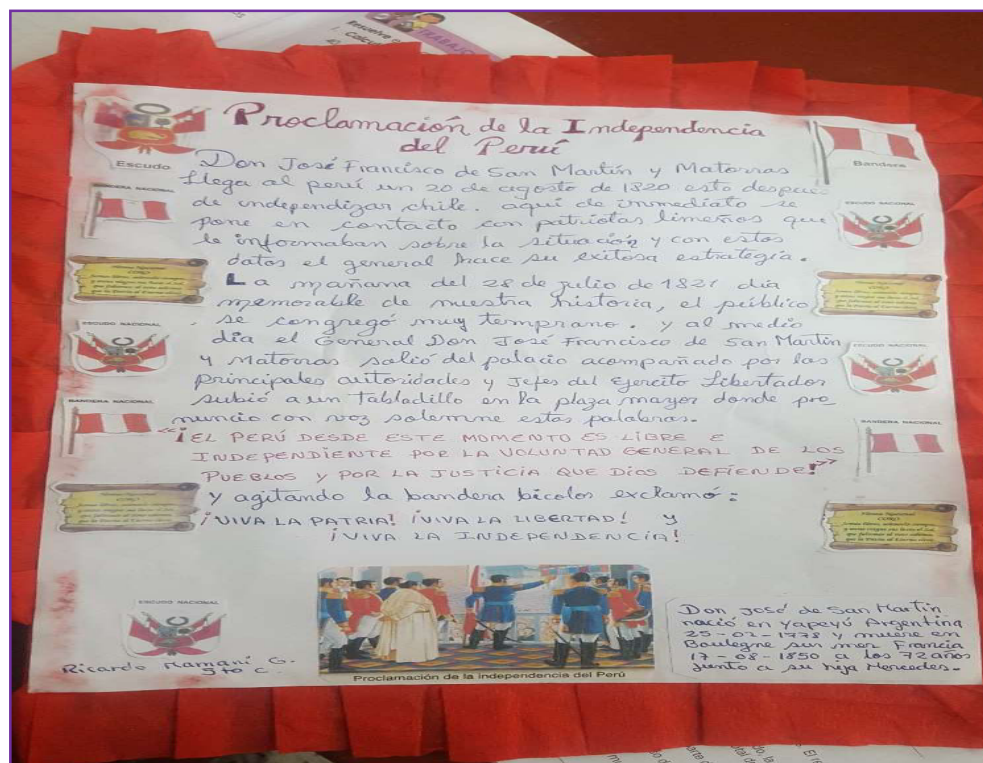 Resuelve
1. Calcula
TRABAJO
Proclamación de la Independencia
del Perú
Escudo
Bandera
Don José Francisco de San Martín y Matorras
llega al perú un 20 de agosto de 1820 esto después
de independizar chile. aquí de inmediato se
pone en contacto con patriotas limeños que
le informaban sobre la situación y con estos
datos el general hace su exitosa estrategia.
La mañana del 28 de julio de 1821 dia
memorable de nuestra historia, el público
se congregó muy temprano. y al medio
dia el General Don José Francisco de San Martín
y Matorras salio del palacio acompañado por las
principales autoridades y Jefes del Ejercito Libertador
subió a un Tabladillo en la plaza mayor donde pro
nuncio con voz solemne estas palabras.
"¡EL PERÚ DESDE ESTE MOMENTO ES LIBRE E
INDEPENDIENTE POR LA VOLUNTAD GENERAL DE LOS
PUEBLOS Y POR LA JUSTICIA QUE DIOS DEFIENDE!"
y agitando la bandera bicolor exclamó:
¡VIVA LA PATRIA! ¡VIVA LA LIBERTAD! y
¡VIVA LA INDEPENDENCIA!
BANDERA NACIONAL
ESCUDO NACIONAL
Himno Nacional
CORO
ESCUDO NACIONAL
BANDERA NACIONAL
Himno Nacional
CORO
ESCUDO NACIONAL
ESCUDO NACIONAL
CORO
ESCUDO NACIONAL
BANDERA NACIONAL
Himno Nacional
CORO
Ricardo Mamani G.
5to C
Proclamación de la independencia del Perú
Don José de San Martín
nació en Yapeyú Argentina
25-02-1778 y muere en
Boulegne sur mer Francia
17-08-1850 a los 72 años
junto a su hija Mercedes.